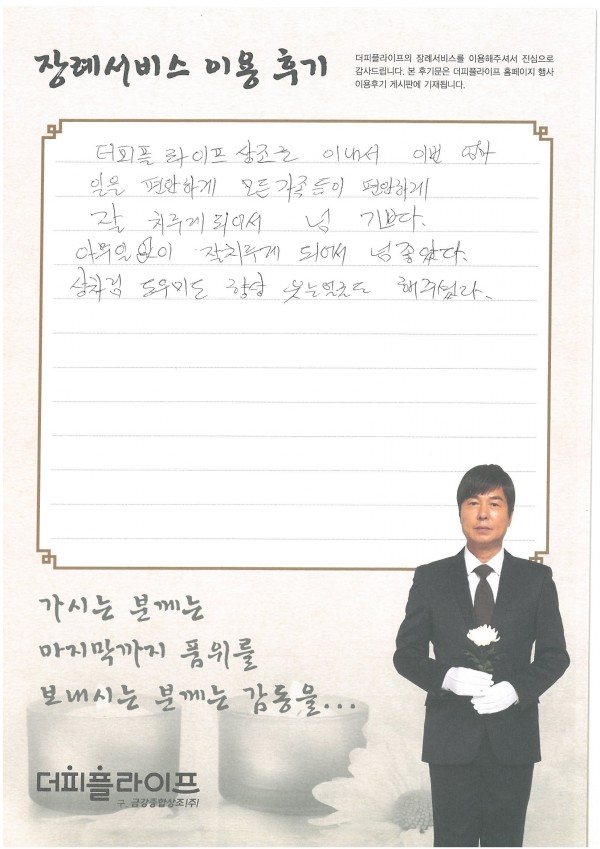 장례서비스 이용 후기
더피플라이프의 장례서비스를 이용해주셔서 진심으로
감사드립니다. 본 후기문은 더피플라이프 홈페이지 행사
이용후기 게시판에 기재됩니다.
더피플 라이프 상조로 이번
일을 편안하게 모든가족들이 편안하게
잘 치루게되어서 넘 기쁘다.
아무일 없이 잘치루게 되어서 넘좋았다.
도우미도 항상 웃는얼굴로 해주셨다.
가시는 분께는
마지막까지 품위를
보내시는 분께는 감동을...
더피플라이프
구. 금강종합상조(주)